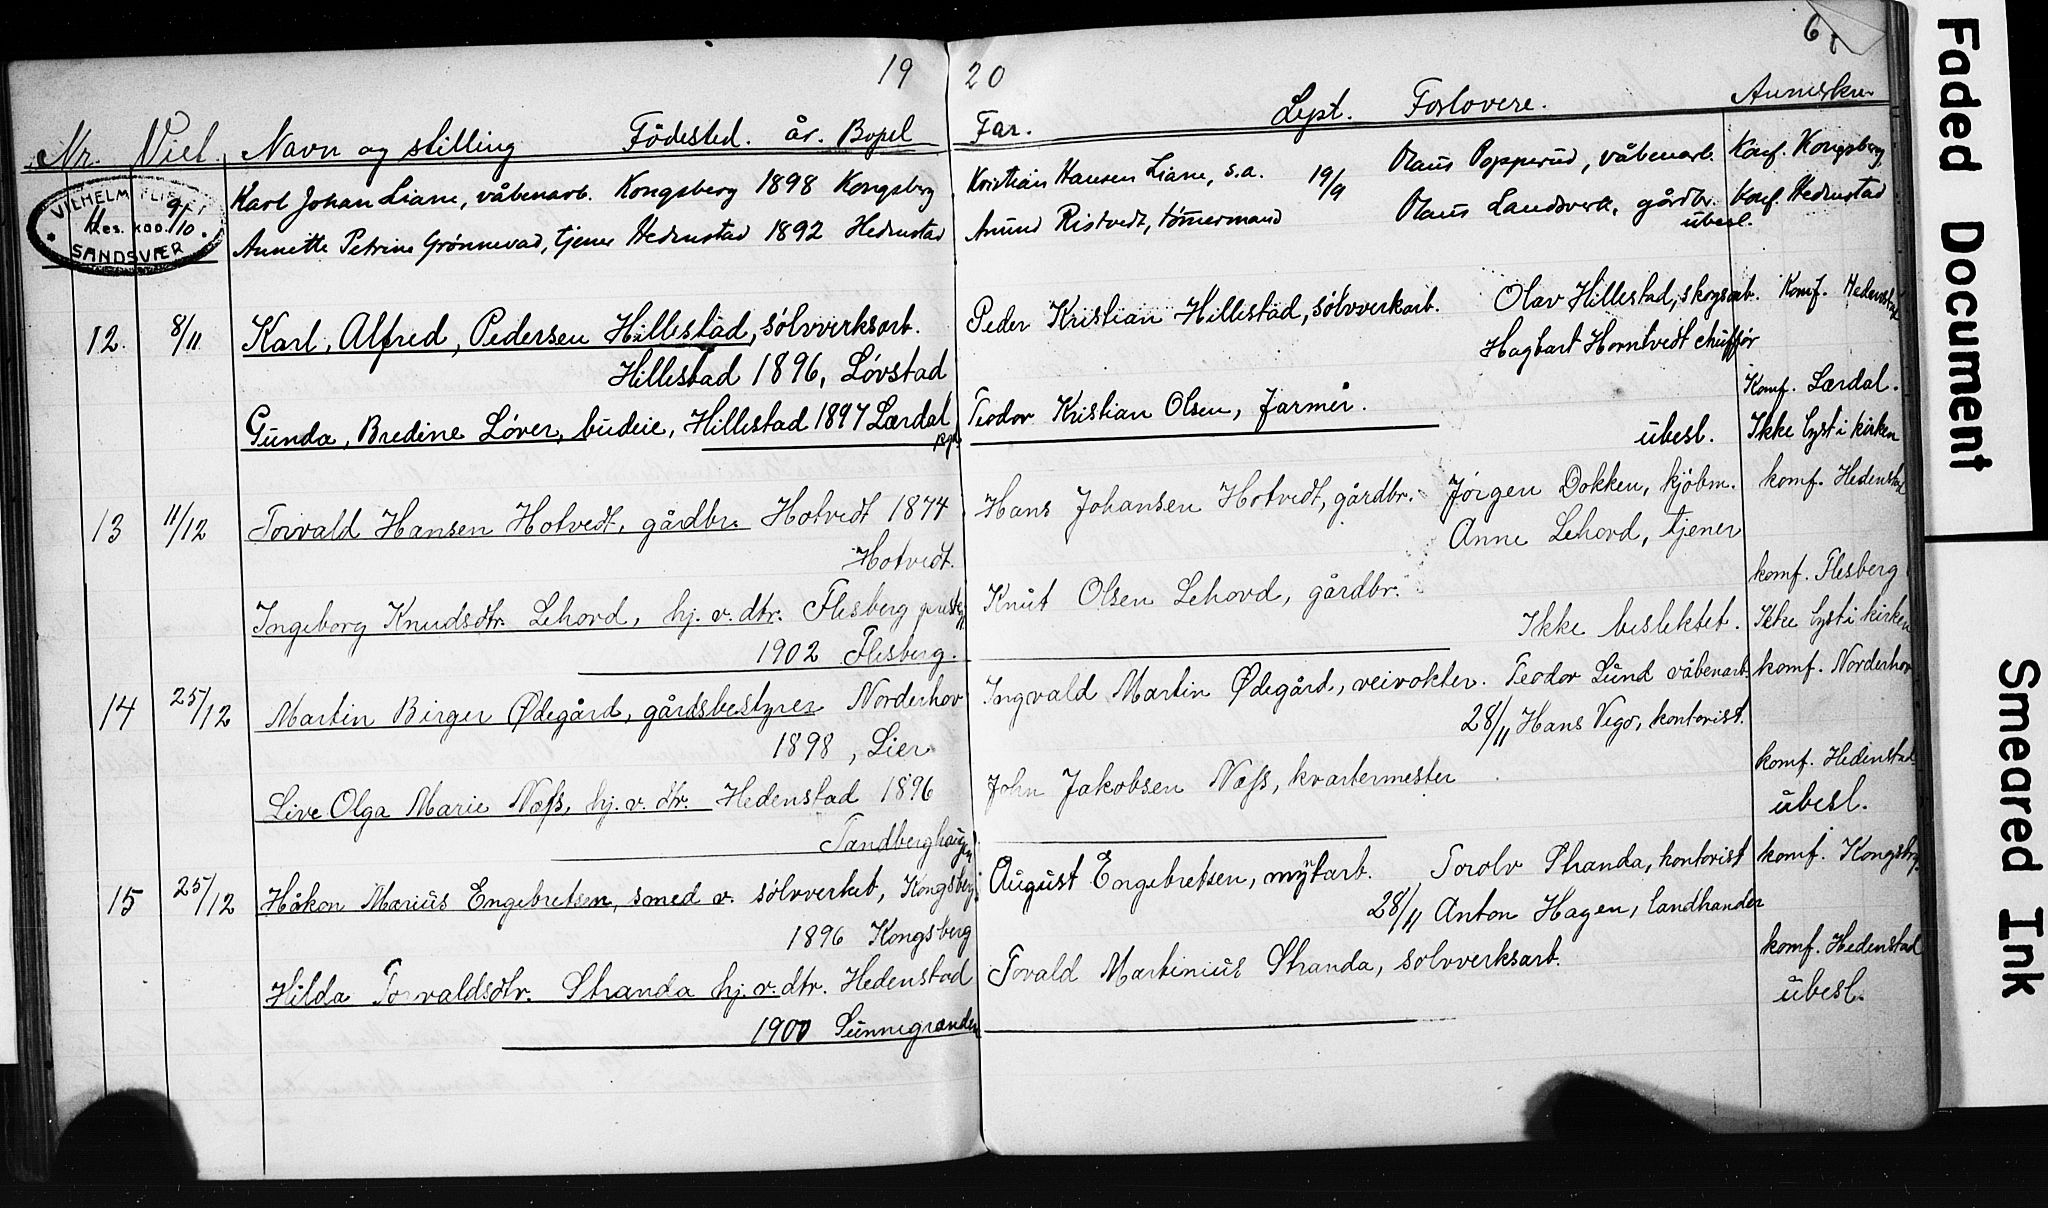 19 20
Nr. Viet. Navn og stilling Födested. år. Bopel Far. Lyst. Forlovere. Anmerkn.
VILHELM
SANDSVÆR
9/10
Karl Johan Liane, våbenarb. Kongsberg 1898 Kongsberg Kristian Hansen Liane, s.a. 19/9 Olaus Popperud, våbenarb. Konf. Kongsberg
Annette Petrine Grønnevad, tjener Hedenstad 1892 Hedenstad Anund Ristvedt, tømmermand Olaus Landsverk, gårdbr. Konf. Hedenstad
ubesl.
12. 8/11 Karl, Alfred, Pedersen Hillestad, sölvverksarb. Peder Kristian Hillestad, sölvverkarb. Olav Hillestad, skogsarb. Komf. Hedenstad
Hillestad 1896, Lövstad Hagbart Horntvedt chufför
Gunda, Bredine Löver, budeie, Hillestad 1897 Lærdal Teodor Kristian Olsen, farmer. Komf. Lærdal.
ubesl. Ikke lyst i kirken
13 11/12 Torvald Hansen Hotvedt, gårdbr. Hotvedt 1874 Hans Johansen Hotvedt, gårdbr. Jörgen Dokken, kjöbm. komf. Hedenstad
Hotvedt. Anne Lehovd, tjener
Ingeborg Knudsdtr. Lehovd, hj. v. dtr. Flesberg Knut Olsen Lehovd, gårdbr. komf. Flesberg
1902 Flesberg. Ikke beslektet. Ikke lyst i kirken
14 25/12 Martin Birger Ødegård, gårdsbestyrer Norderhov Ingvald Martin Ødegård, veivokter. Teodor Lund våbenarb. komf. Norderhov
1898, Lier 28/11 Hans Vego, kontorist.
Live Olga Marie Næss, hj. v. dtr. Hedenstad 1896 John Jakobsen Næss, kvartermester komf. Hedenstad
Tandberghaugen ubesl.
15 25/12 Håkon Marius Engebretsen, smed v. sölvverket, Kongsberg August Engebretsen, myntarb. Torolv Stranda, kontorist komf. Kongsbrg.
1896 Kongsberg 28/11 Anton Hagen, landhandler
Hilda Torvaldsdtr. Stranda hj. v. dtr. Hedenstad Tovald Martinius Stranda, sölvverksarb. komf. Hedenstad
1900 Sunnegranden ubesl.
Faded Document
Smeared Ink